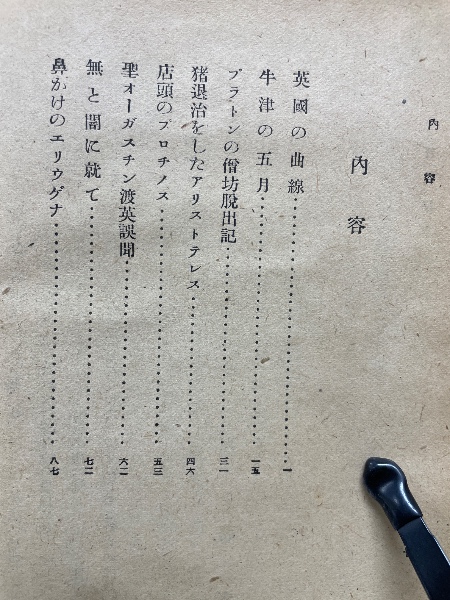 内容
内容
英國の曲線……………………一
牛津の五月……………………一五
プラトンの僧坊脱出記……………………三一
猪退治をしたアリストテレス……………………四六
店頭のプロチノス……………………五三
聖オーガスチン渡英誤聞……………………六二
無と闇に就て……………………七二
鼻かけのエリウゲナ……………………八七